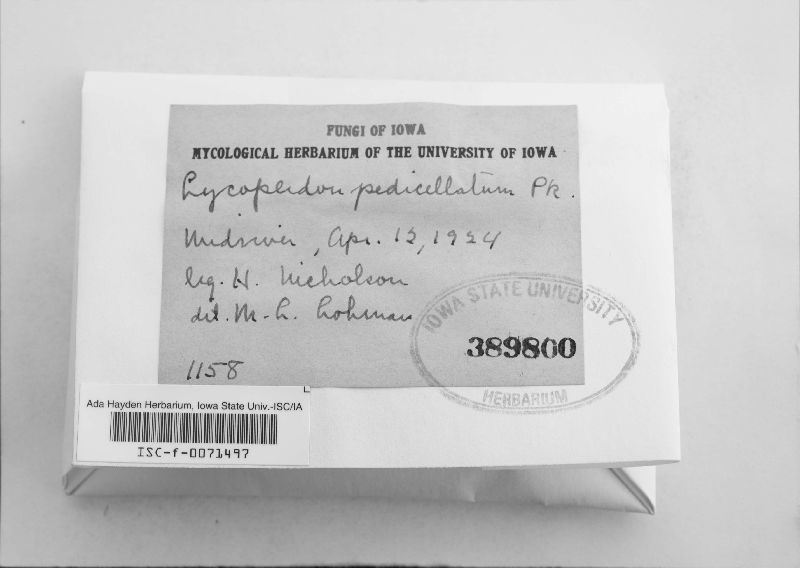 FUNGI OF IOWA
MYCOLOGICAL HERBARIUM OF THE UNIVERSITY OF IOWA
Lycoperdon pedicellatum Pk.
Midriver, Apr. 12, 1924
leg. H. Nicholson
det. M. L. Lohman
1158
IOWA STATE UNIVERSITY
389800
HERBARIUM
Ada Hayden Herbarium, Iowa State Univ.-ISC/IA
ISC-f-0071497